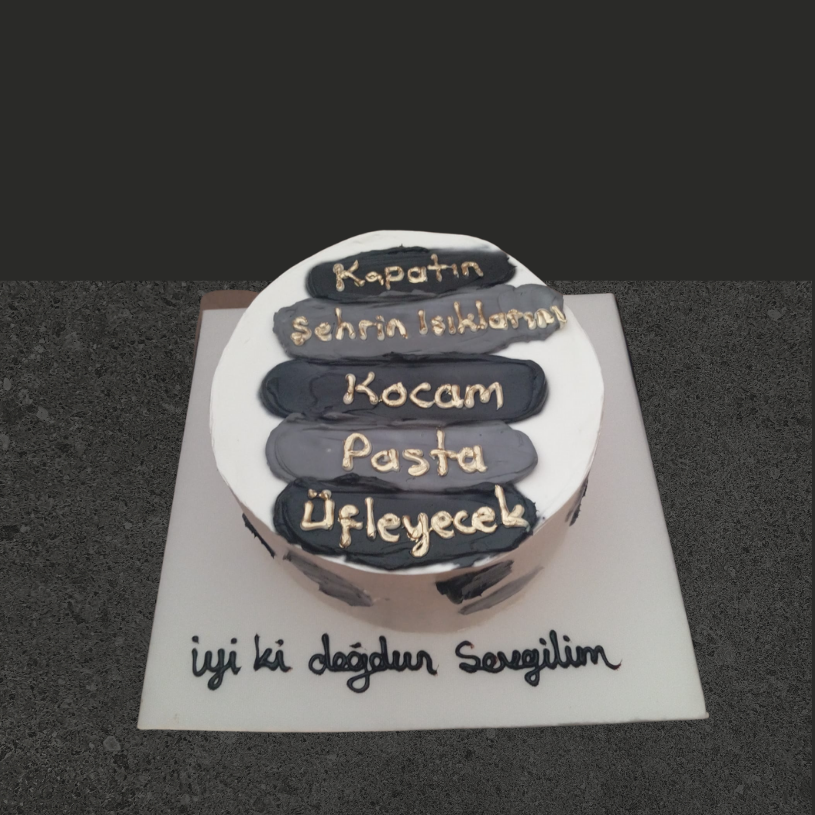 Kapatın
Şehrin Işıklarını
Kocam
Pasta
Üfleyecek
iyi ki doğdun Sevgilim